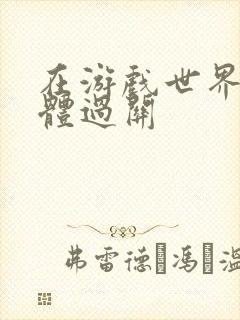 在游戲世界
體過關
弗雷德�馮�溫